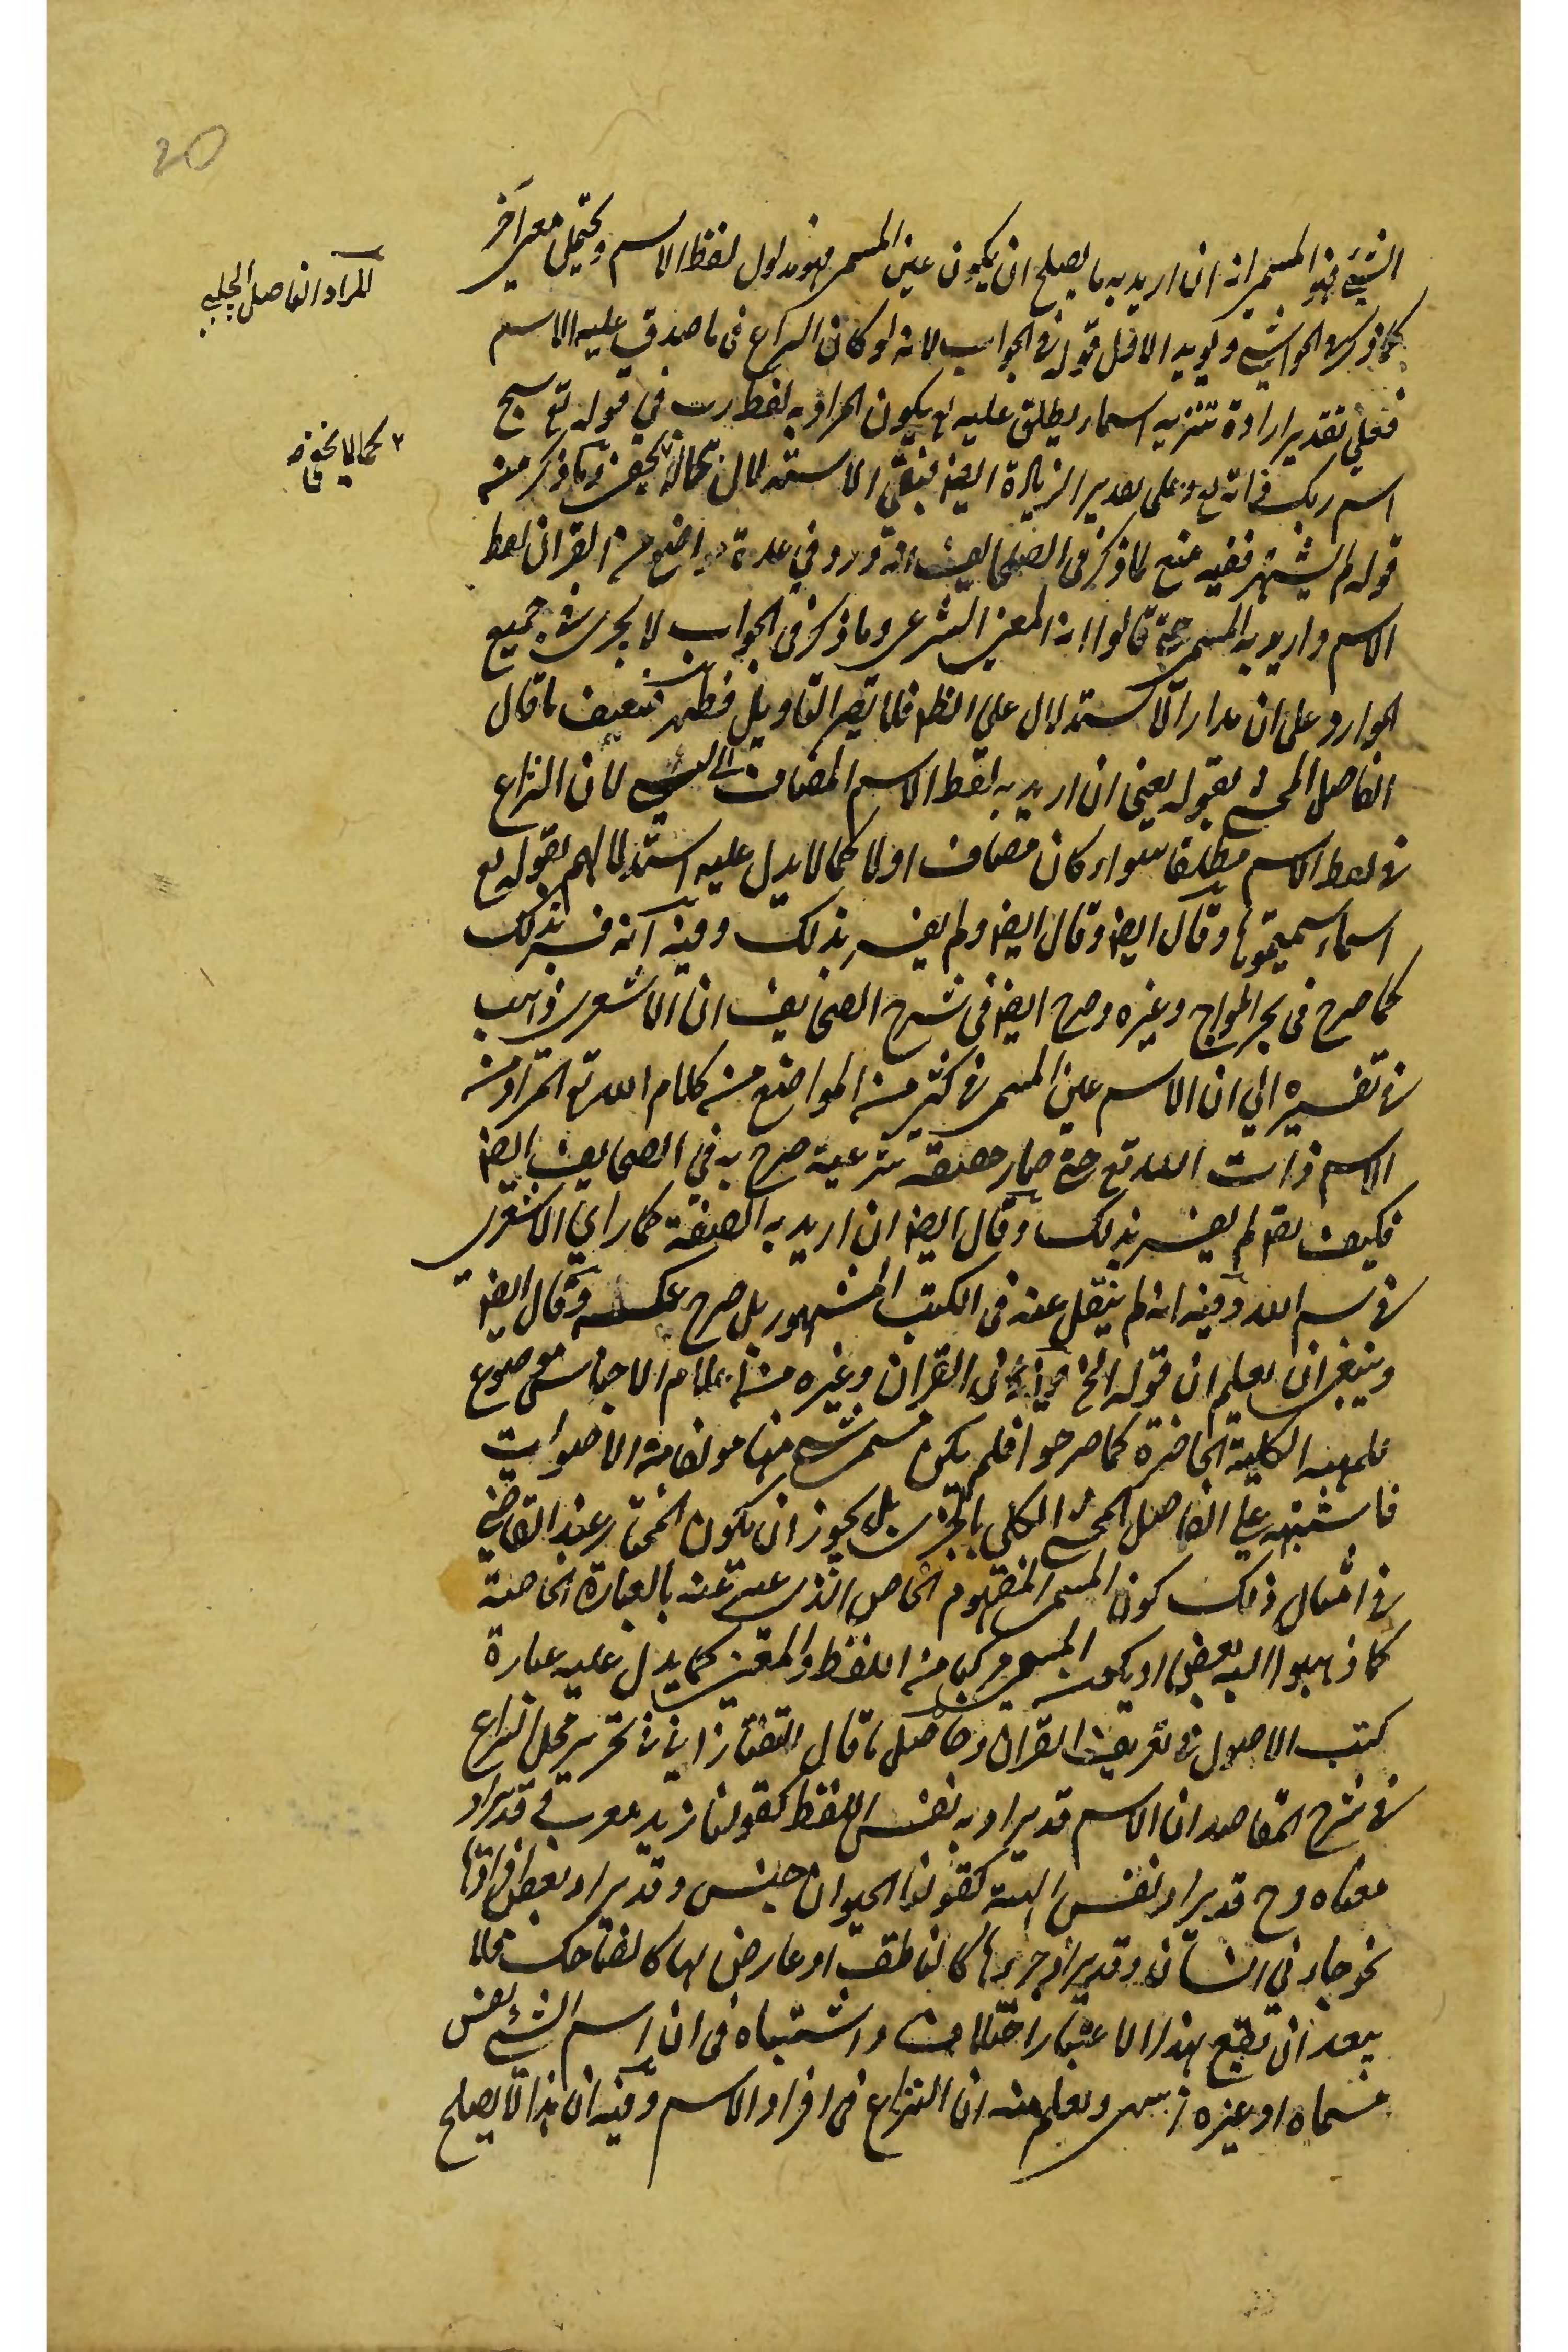 20
الشئ فهو المسمى انه ان اريد به ما يصلح ان يكون عين المسمى فهو مدلول لفظ الاسم ويحتمل معنى آخر
المراد الفاضل الچلبي
كما ذكر في الحواشي ويؤيد الاول قوله في الجواب لانه لو كان النزاع في ما صدق عليه الاسم
فعلى تقدير ارادة تنزيه اسماء يطلق عليه تع يكون المراد به لفظ رب في قوله تع سبح
اسم ربك ذاته تع وعلى تقدير الزيادة ايضا فبقي الاستدلال بحاله وما ذكر من
كما لا يخفى
قوله لم يشتهر ففيه منع لما ذكر في الصحايف انه ورد في عدة مواضع من القران لفظ
الاسم واريد به المسمى حتى قالوا انه المعنى الشرعي وما ذكر في الجواب لا يجري في جميع
الموارد على ان مدار الاستدلال على الظ فلا يضر التاويل فظهر ضعيف ما قال
الفاضل المحشي بقوله يعني ان اريد به لفظ الاسم المضاف الى الشئ لان النزاع
في لفظ الاسم مطلقا سواء كان مضاف اولا كما لا يدل عليه استدلالهم بقوله تع
اسماء سميتموها وقال ايضا وقال ايضا ولم يفسر بذلك وفيه انه فسر بذلك
كما صرح في بحر المواج وغيره وصرح ايضا في شرح الصحايف ان الاشعري ذاهب
في تفسيره الى ان الاسم عين المسمى في كثير من المواضع من كلام الله تع المراد من
الاسم ذات الله تع حتى صار حقيقة شرعية صرح به في الصحايف ايضا
فكيف يقو لم يفسر بذلك وقال ايضا ان اريد به الصفة كما راي الاشعري
في بسم الله وفيه انه لم ينقل عنه في الكتب المشهور بل صرح عكسه وقال ايضا
وينبغي ان يعلم ان قوله الخ وفيه ان القران وغيره من اعلام الاجناس موضوع
للمهية الكلية الحاضرة كما صرحوا فلم يكن مسمى شئ منها مولفا من الاصوات
فاشتبه على الفاضل المحشي الكلي بالجزئي بل يجوز ان يكون المختار عند القاضي
في امثال ذلك كون المسمى المفهوم الخاص الذي عبر عنه بالعبارة الخاصة
كما ذهبوا اليه بعض او يكون المسمى مركبا من اللفظ والمعنى كما يدل عليه عبارة
كتب الاصول في تعريف القران وحاصل ما قال التفتازاني في تحرير محل النزاع
في شرح المقاصد ان الاسم قد يراد به نفس اللفظ كقولنا زيد معرب وقد يراد
معناه وح قد يراد نفس المهية كقولنا الحيوان جنس وقد يراد بعض افرادها
نحو جاءني انسان وقد يراد جزءها كالناطق او عارض لها كالضاحك فلا
يبعد ان يقع بهذا الاعتبار اختلاف واشتباه في ان اسم الشئ نفس
مسماه او غيره انتهى ويعلم منه ان النزاع في افراد الاسم وفيه ان هذا لا يصلح